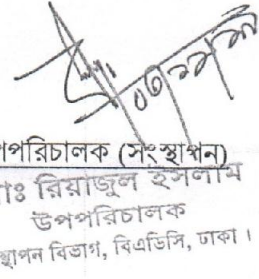 পপরিচালক (সংস্থাপন)
ঃ রিয়াজুল ইসলাম
উপপরিচালক
স্থাপন বিভাগ, বিএডিসি, ঢাকা।